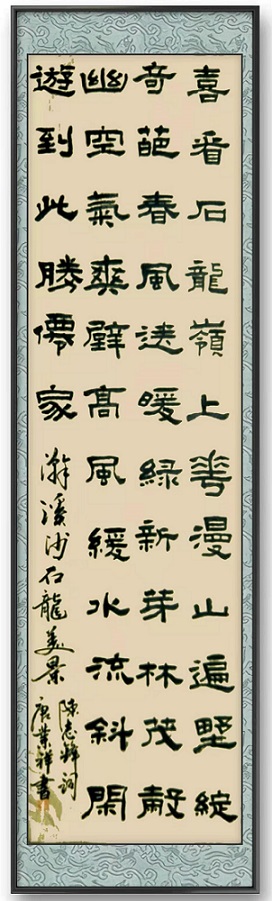 喜看石龍嶺上華漫山遍野綻
奇葩春風送暖綠新芽林茂穀
幽空氣爽壁高風緩水流斜閑
遊到此勝僊家
澣溪沙石龍美景
陳志詞
唐業祥書